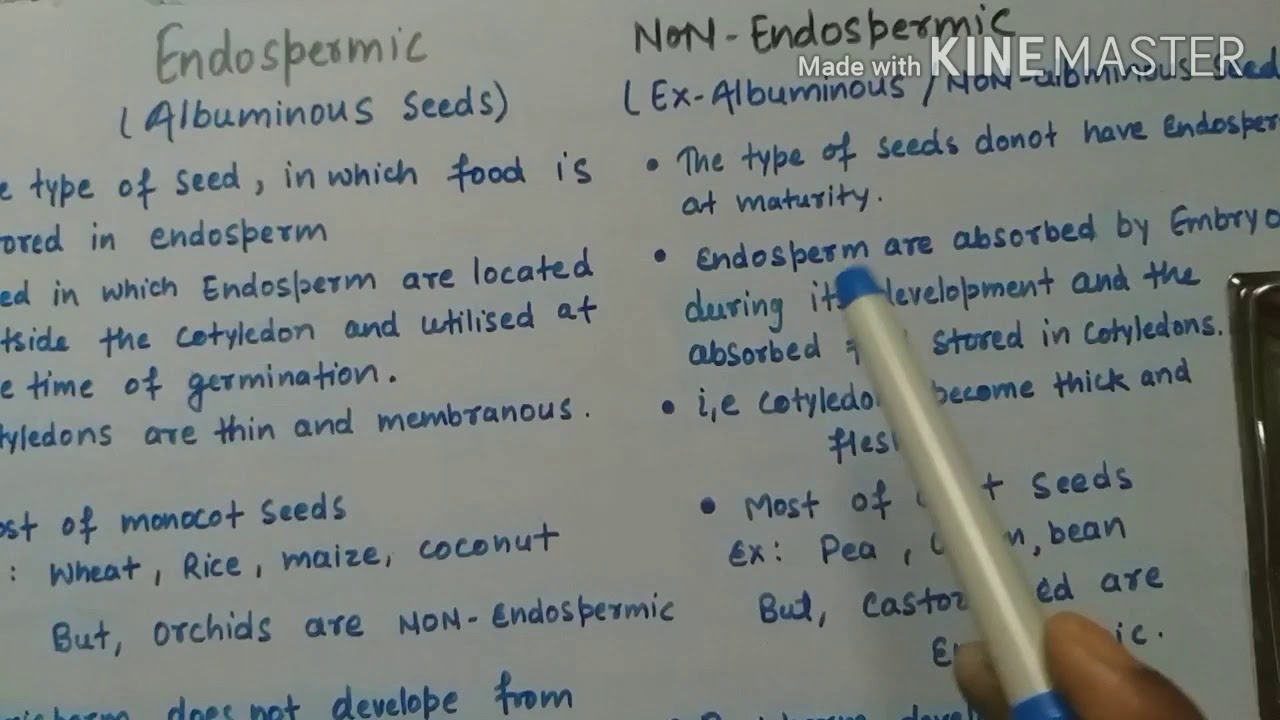 Endospermic
(Albuminous seeds)
type of seed, in which food is
in endosperm
in which Endosperm are located
the cotyledon and utilised at
time of germination.
are thin and membranous.
of monocot seeds
: Wheat, Rice, maize, coconut
But, orchids are NON-Endospermic
does not develope from
NON-Endospermic
Made with KINEMASTER
(Ex-Albuminous / NON-
• The type of seeds donot have
at maturity.
• Endosperm are absorbed by Embryo
during its development and the
absorbed stored in cotyledons.
• i,e become thick and
• Most of seeds
Ex: Pea, bean
But, castor are